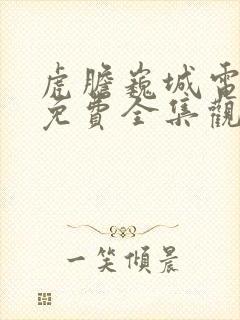 虎膽巍城電
免費全集觀
一笑傾晨